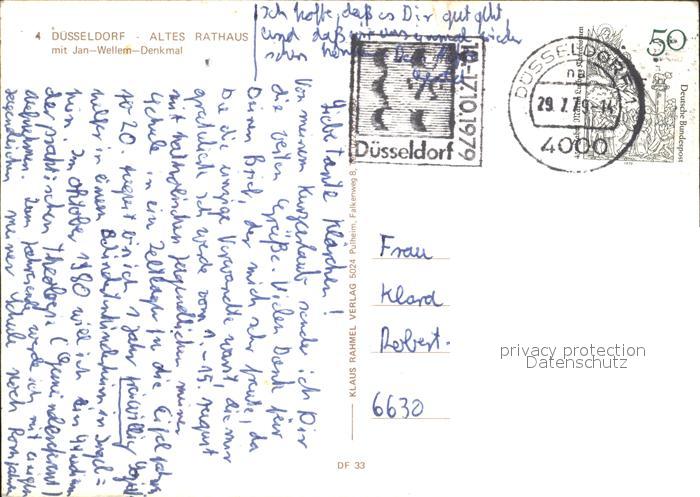 4 DÜSSELDORF - ALTES RATHAUS
mit Jan-Wellem-Denkmal
Liebe Tante Klärchen!
Von meinem Kurzurlaub sende ich Dir
die besten Grüße. Vielen Dank für
Deinen Brief, der mich sehr freute, da
Du die einzige Verwandte warst, die mir
gratulierte. Ich werde vom 1. - 15. August
mit katholischen Jugendlichen meiner
Schule in ein Zeltlager in die Eifel fahren.
20. August bin ich 1 Jahr freiwillig
helfer in einem
hin. Im Oktober 1980 will ich ein Studium
der praktischen Theologie (Gemeindereferent)
aufnehmen. Zum Jahresende werde ich mit einigen
Jugendlichen meiner Schule nach Rom fahren
Ich hoffe, daß es Dir gut geht
und daß wir uns einmal wieder
sehen können. Dein
KLAUS RAHMEL VERLAG 5024 Pulheim, Falkenweg 8,
DF 33
16.-17.10.1979
Düsseldorf
DÜSSELDORF 1
np
29.7.79-14
4000
50
Deutsche Bundespost
1979
Frau
Klara
Robert.
6630
privacy protection
Datenschutz